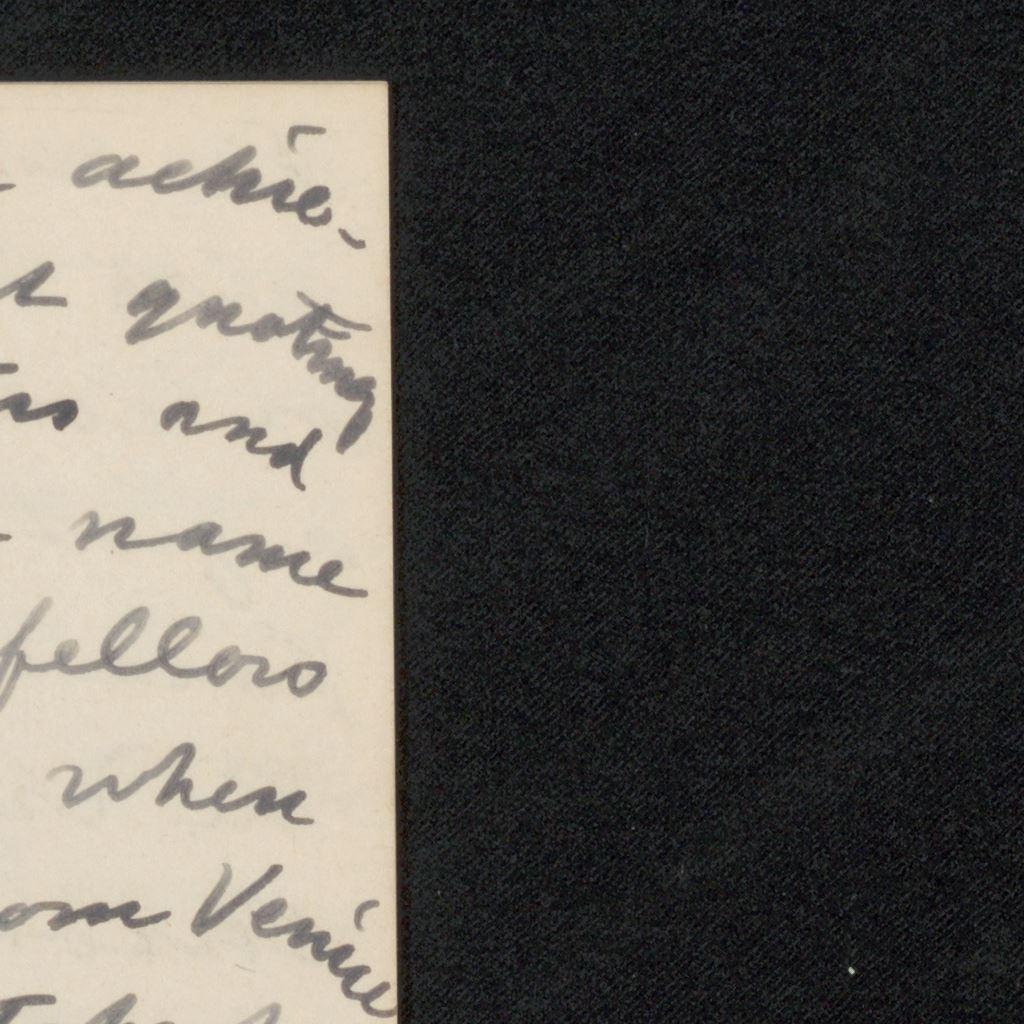 achie-
quoting
and
name
fellows
when
om Venice